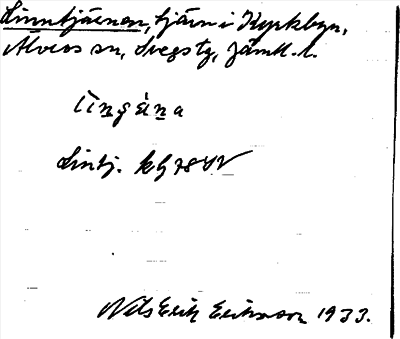 Linntjärnen, tjärn i Kyrkbyn,
Älvros sn, Svegs tg, Jämtl. l.
Lintj. kg 78 SV
Nils Erik Eriksson 1933.